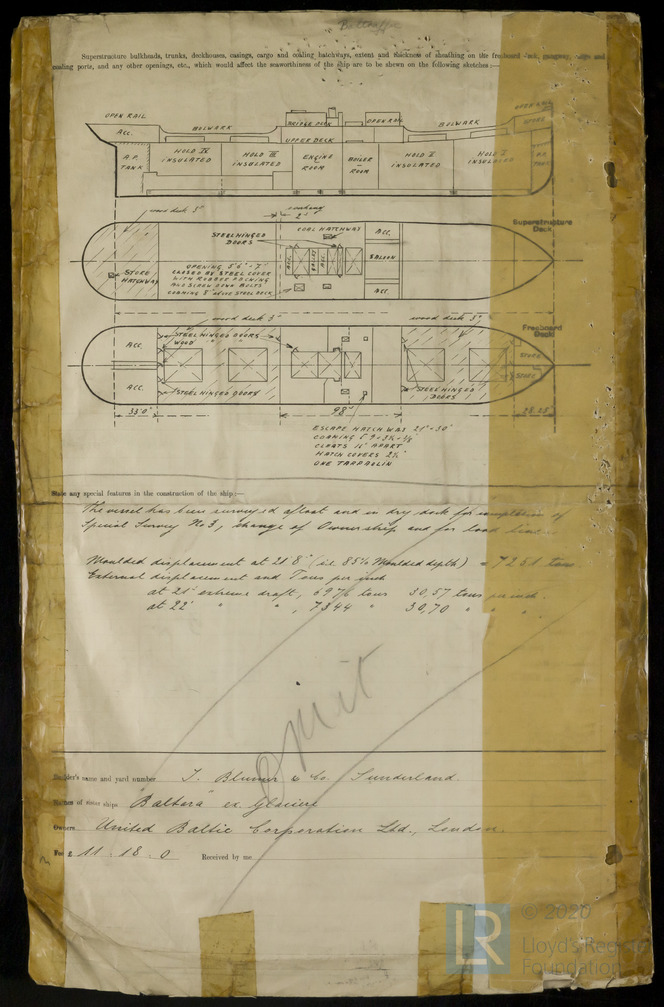 Superstructure bulkheads, trunks, deckhouses, casings, cargo and coaling hatchways, extent and thickness of sheathing on the freeboard deck, gangway, cargo and
coaling ports, and any other openings, etc., which would affect the seaworthiness of the ship are to be shewn on the following sketches:—
OPEN RAIL
OPEN RAIL
ACC.
BULWARK
BRIDGE DECK
OPEN RAIL
BULWARK
STORE
UPPER DECK
A.P. TANK
HOLD IV INSULATED
HOLD III INSULATED
ENGINE ROOM
BOILER ROOM
HOLD II INSULATED
HOLD I INSULATED
wood deck 3"
coaming
2'
Superstructure Deck
STEEL HINGED DOORS
COAL HATCHWAY
ACC.
STORE HATCHWAY
OPENING 5'6" × 7'
CLOSED BY STEEL COVER
WITH RUBBER PACKING
AND SCREW DOWN BOLTS
COAMING 8" ABOVE STEEL DECK
ACC.
GALLEY
ACC.
SALOON
ACC.
wood deck 3"
wood deck 3"
Freeboard Deck
ACC.
STEEL HINGED DOORS
WOOD " "
STORE
STORE
ACC.
STEEL HINGED DOORS
STEEL HINGED DOORS
33'0"
98'
28.25'
ESCAPE HATCHWAY 21" × 30"
CLEATS 16" APART
HATCH COVERS 2½"
ONE TARPAULIN
State any special features in the construction of the ship:—
The vessel has been surveyed afloat and in dry dock for completion of
Special Survey No 3, change of Ownership and for load lines
Moulded displacement at 21'8" (i.e. 85% Moulded depth) = 7251 tons.
External displacement and Tons per inch
at 21' extreme draft, 6976 tons 30,57 tons per inch.
at 22' " " , 7344 " 30,70 " " "
Omit
Builder's name and yard number J. Blumer & Co. Sunderland.
Names of sister ships "Baltara" ex Glacier
Owners United Baltic Corporation Ltd., London.
Fee £ 11 . 18 . 0 Received by me
LR
© 2020
Lloyd's Register
Foundation